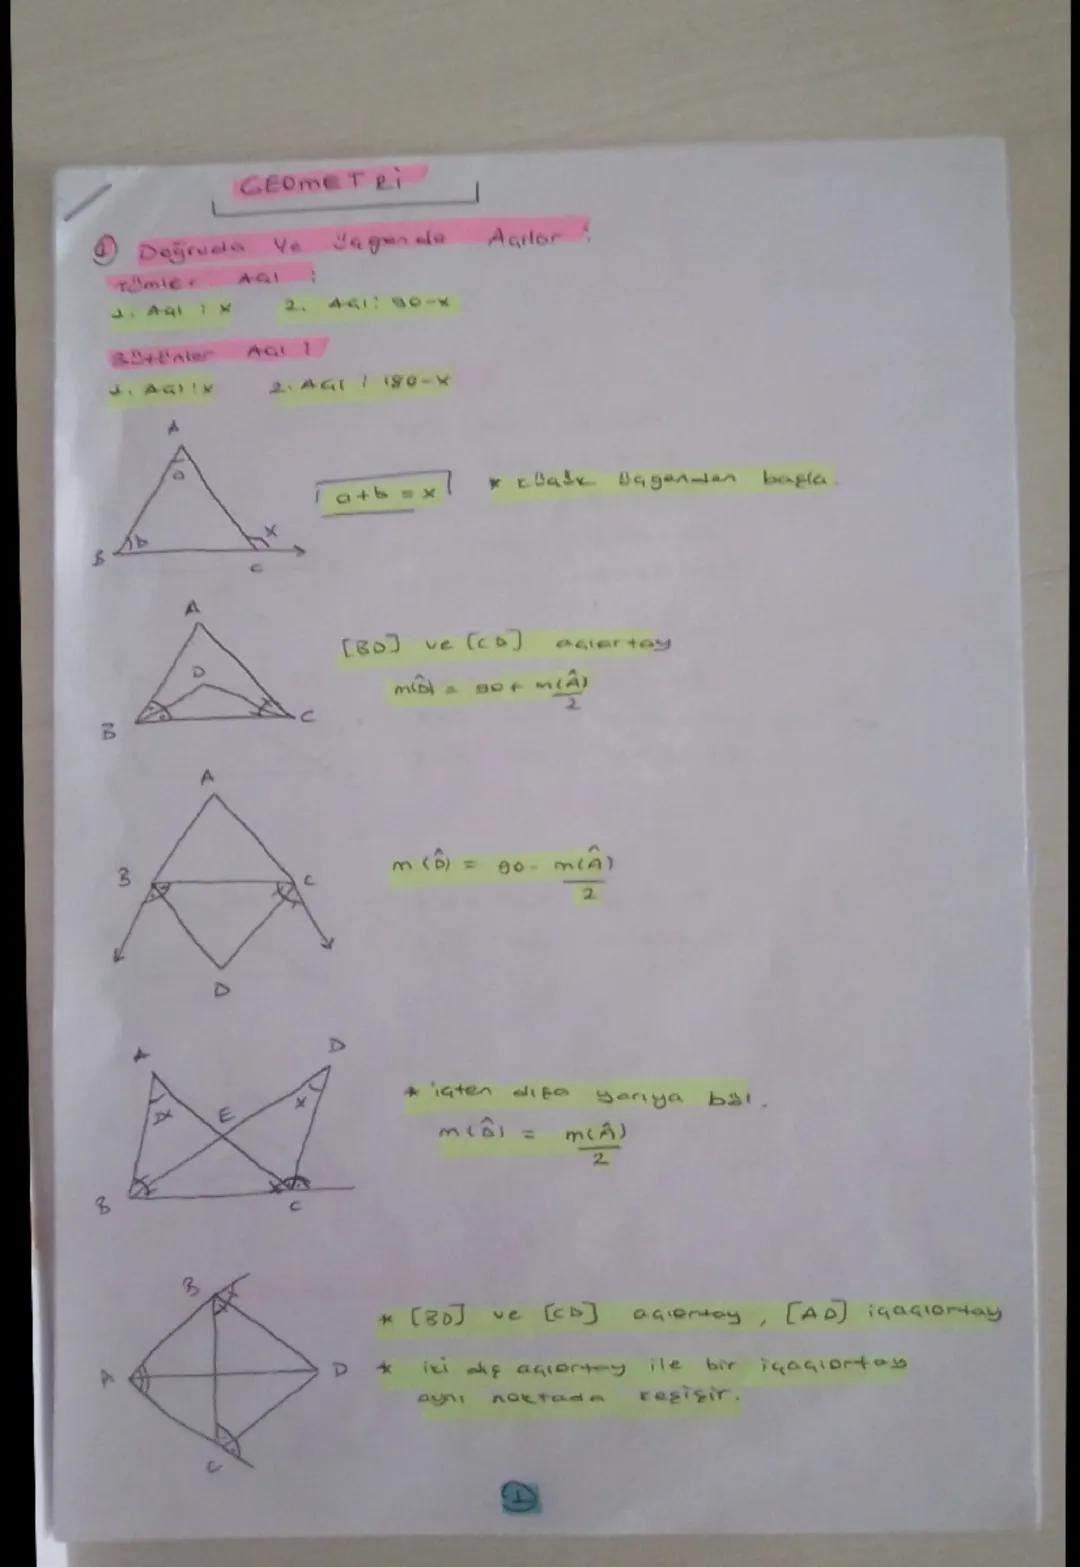 GEOMETRİ
① Doğruda Ve Üçgende Açılar :
Tümler Açı :
1. Açı : x 2. Açı : 90-x
Bütünler Açı :
1. Açı : x 2. Açı : 180-x
A
a
b
x
B
C
a+b = x
* küçük üçgenden başla.
A
D
B
C
[BD] ve [CD] açıortay
m(D̂) = 90 + m(Â)
2
A
B
C
D
m(D̂) = 90 - m(Â)
2
A
D
x
E
B
C
* içten dışa yarıya böl.
m(D̂) = m(Â)
2
B
A
D
C
* [BD] ve [CD] açıortay, [AD] içaçıortay
* iki dış açıortay ile bir içaçıortay
aynı noktada kesişir.
1